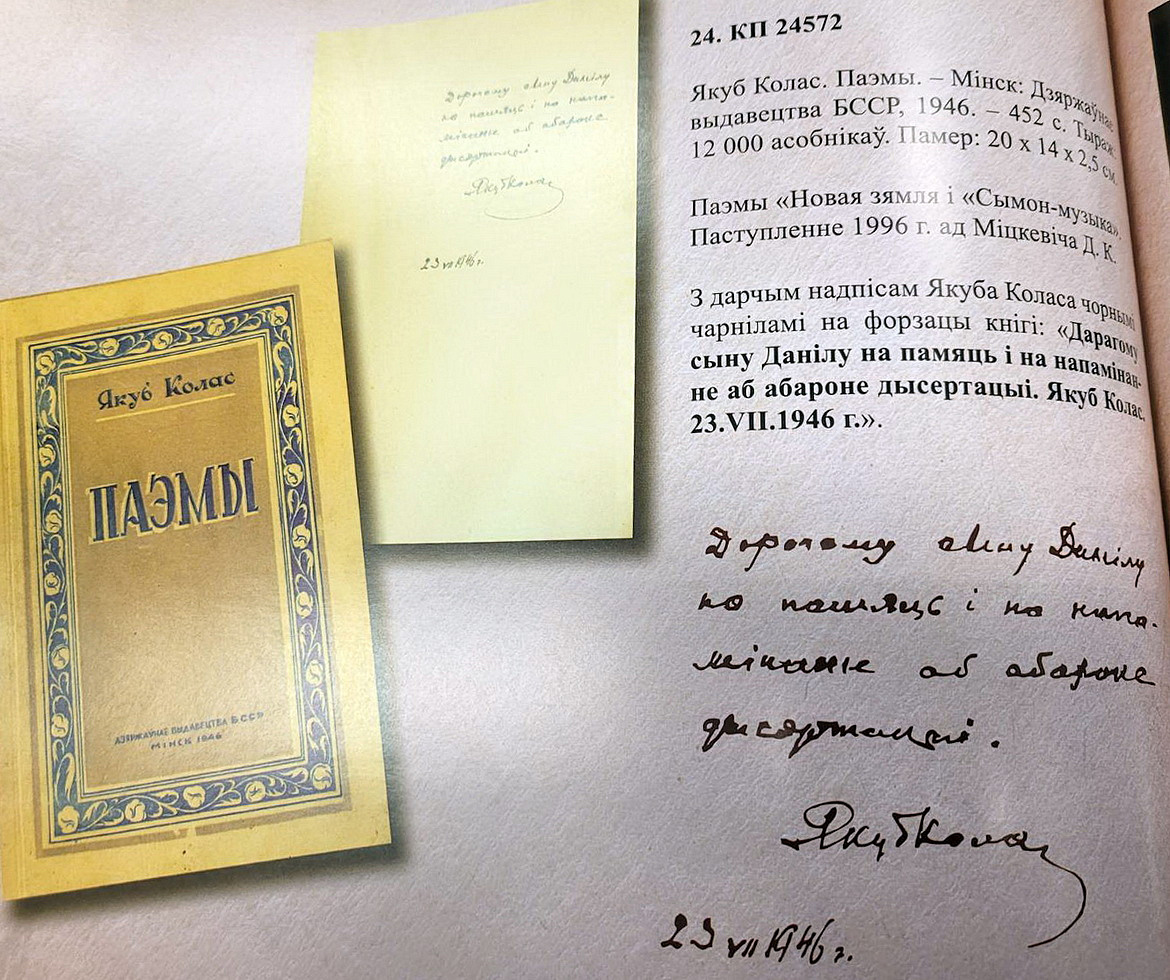 Дарагому сыну Данілу
на памяць і на напа-
мінанне аб абароне
дысертацыі.
Якуб Колас
23 VII 1946 г.
Якуб Колас
ПАЭМЫ
ДЗЯРЖАЎНАЕ ВЫДАВЕЦТВА БССР
МІНСК 1946
24. КП 24572
Якуб Колас. Паэмы. – Мінск: Дзяржаўнае
выдавецтва БССР, 1946. – 452 с. Тыраж:
12 000 асобнікаў. Памер: 20 х 14 х 2,5 см.
Паэмы «Новая зямля і «Сымон-музыка».
Паступленне 1996 г. ад Міцкевіча Д. К.
З дарчым надпісам Якуба Коласа чорнымі
чарніламі на форзацы кнігі: «Дарагому
сыну Данілу на памяць і на напамінан-
не аб абароне дысертацыі. Якуб Колас.
23.VII.1946 г.».
Дарагому сыну Данілу
на памяць і на напа-
мінанне аб абароне
дысертацыі.
Якуб Колас
23 VII 1946 г.